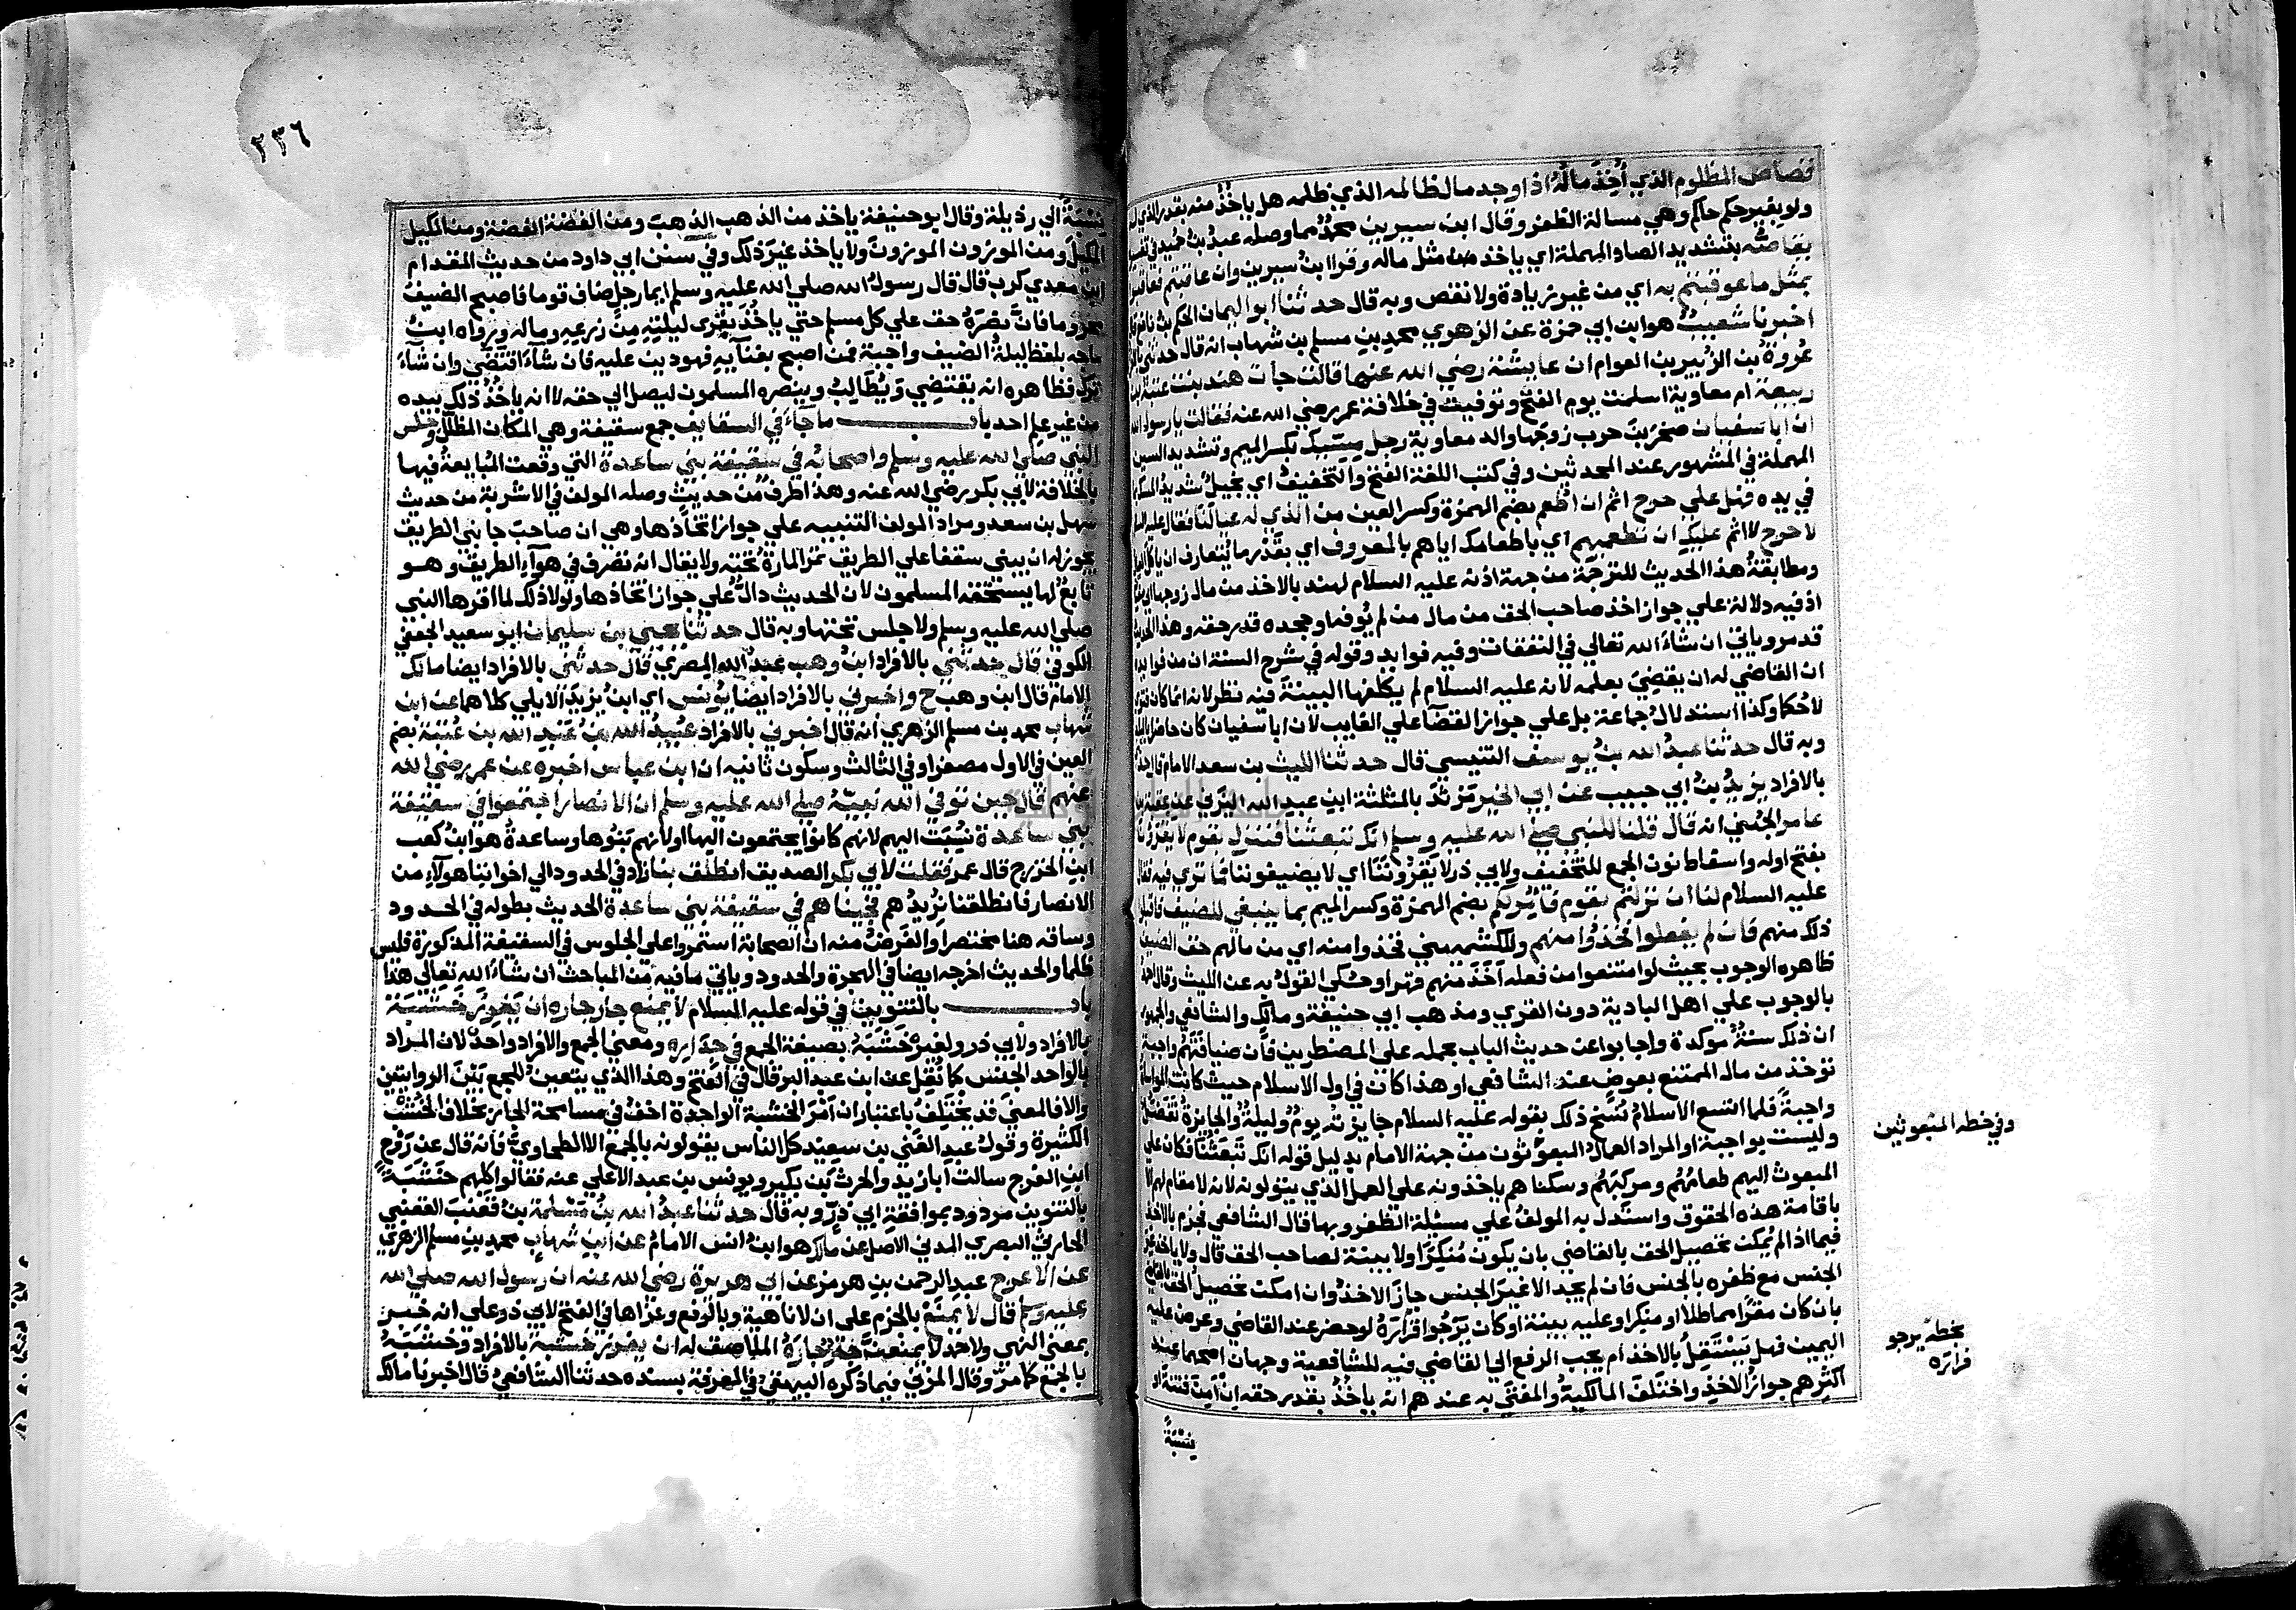 قصاص المظلوم الذي أُخِذَ مالُه اذا وجد مال ظالمه الذي ظلمه هل ياخُذُ منه بقدر الذي له
ولو بغير حكم حاكم وهي مسالة الظفر وقال ابن سيرين محمدٌ مما وصله عبدُ بن حُميد في تفسيره
يقاصُّه بتشديد الصاد المهملة اي ياخذ مثل ماله وقرا ابنُ سيرين وان عاقبتم فعاقبوا
بمثل ما عوقبتم به اي من غير زيادة ولا نقص وبه قال حدثنا ابو اليمان الحكم بن نافع قال
اخبرنا شعيبٌ هو ابن ابي حمزة عن الزهري محمدِ بنِ مسلم بن شهاب انه قال حدثني بالافراد
عُروةُ بن الزُبير بن العوام ان عايشة رضي الله عنها قالت جات هند بنت عتبة بن
ربيعة ام معاوية اسلمت يوم الفتح وتوفيت في خلافة عمر رضي الله عنه فقالت يا رسول الله
ان ابا سفيان صخرَ بنَ حرب زوجَها والد معاوية رجل مِسّيك بكسر الميم وتشديد السين
المهملة في المشهور عند المحدثين وفي كتب اللغة الفتح والتخفيفُ اي بخيلٌ شديدُ المسك
في يده فهل علي حرج اثم ان اُطعم بضم الهمزة وكسر العين من الذي له عيالَنا فقال عليه السلام
لا حرج لا اثم عليكِ ان تطعميهم اي باطعامك اياهم بالمعروف اي بقَدْر ما يُتعارف ان ياكل العيال
ومطابقةُ هذا الحديث للترجمة من جهة اذنه عليه السلام لهند بالاخذ من مال زوجها
اذ فيه دلالة علي جواز اخذ صاحب الحق من مال من لم يُوفه او جحده قدر حقه وهذا الحديث
قد مر وياتي ان شاء الله تعالي في النفقات وفيه فوايد وقوله في شرح السنة ان من فوايده
ان القاضي له ان يقضيَ بعلمه لانه عليه السلام لم يكلفها البينةَ فيه نظر لانه انما كان فتوي
لا حُكما وكذا استدلالُ جماعة به علي جواز القضآ علي الغايب لان ابا سفيان كان حاضرا بالبلد
وبه قال حدثنا عبدُ الله بنُ يوسف التنيسي قال حدثنا الليث بن سعد الامام قال حدثني
بالافراد يزيدُ بنُ ابي حبيب عن ابي الخير مَرثد بالمثلثة ابنِ عبد الله اليزني عن عقبة بن
عامر الجُهني انه قال قلنا للنبي صلي الله عليه وسلم انك تبعثُنا فننزل بقوم لا يَقرُونا
بفتح اوله واسقاط نون الجمع للتخفيف ولابي ذر لا يَقرُونَنَا اي لا يضيفوننا فما تري فيه فقال
عليه السلام لنا ان نزلتم بقوم فاُمِرَ لكم بضم الهمزة وكسر الميم بما ينبغي للضيف فاقبلوا
ذلك منهم فان لم يفعلوا فخُذُوا منهم وللكشميهني فخذوا منه اي من مالهم حق الضيف
ظاهره الوجوب بحيث لو امتنعوا من فعله اُخَذ منهم قهرا وحُكي القولُ به عن الليث وقال احمدُ
بالوجوب علي اهل البادية دون القري ومذهب ابي حنيفة ومالك والشافعي والجمهور
ان ذلك سنةٌ موكدة واجابوا عن حديث الباب بحمله علي المضطرين فان ضيافَتَهُم واجبة
توخذ من مال الممتنع بعوضٍ عند الشافعي او هذا كان في اول الاسلام حيث كانت المواساةُ
واجبةً فلما اتسع الاسلامُ نُسخ ذلك بقوله عليه السلام جايزته يومٌ وليلةٌ والجايزةُ تفضّلٌ
وليست بواجبة او المراد العمالُ المبعوثون من جهة الامام بدليل قوله انك تَبعَثُنا فكان علي
المبعوث اليهم طعامُهُم ومركبُهُم وسكناهم ياخذونه علي العمل الذي يتولونه لانه لا مقام لهم الا
باقامة هذه الحقوق واستدل به المولفُ علي مسئلة الظفر وبها قال الشافعي فجزم بالاخذ
فيما اذا لم يُمكن تحصيل الحق بالقاضي بان يكون مُنكِرًا ولا بينة لصاحب الحق قال ولا ياخذ غير
الجنس مع ظفره بالجنس فان لم يجد الا غيرَ الجنس جازَ الاخذُ وان امكن تحصيلُ الحق بالقاضي
بان كان مقرًا مماطلا او منكرا وعليه بينة او كان يَرجُوا اقرارَهُ لو حضر عند القاضي وعرض عليه
اليمين فهل يَستَقِلُ بالاخذ ام يجب الرفع الي القاضي فيه للشافعية وجهان اصحهما عند
اكثرهم جوازُ الاخذِ واختلف المالكيةُ والمفتَي به عندهم انه ياخُذُ بقدر حقه ان اَمِنَ فتنةً او
نِسْبَةً
وفي خطه المبعوثين
بخطه يرجو
قراره
٢٣٦
نِسْبَةً الي رذيلة وقال ابو حنيفة ياخذ من الذهب الذهبَ ومن الفضة الفضةَ ومن المكيل
المكيلَ ومن الموزون الموزونَ ولا ياخذ غيرَ ذلك وفي سنن ابي داود من حديث المقدام
ابن معدي كرب قال قال رسولُ الله صلي الله عليه وسلم ايما رجلٍ ضاف قوما فاصبح الضيفُ
محروما فانَّ نصرَهُ حق علي كل مسلم حتي ياخُذَ بقِرَي ليلتِهِ من زرعِهِ وماله ورواه ابنُ
ماجه بلفظ ليلةُ الضيف واجبة فمن اصبح بفنآيه فهو دين عليه فان شآءَ اقتضي وان شآءَ
ترك فظاهره انه يقتضِي ويُطالِبُ وينصره المسلمون ليصل الي حقه لا انه ياخُذُ ذلك بيده
من غير علم احد باب ما جآء في السقايف جمع سقيفة وهي المكان المظلَّل وجلس
النبي صلي الله عليه وسلم واصحابُه في سقيفة بني ساعدة التي وقعت المُبايعةُ فيها
بالخلافة لابي بكر رضي الله عنه وهذا طرفٌ من حديثٍ وصله المولف في الاشربة من حديث
سهل بن سعد ومراد المولف التنبيه علي جواز اتخاذها وهي ان صاحبَ جانبي الطريق
يجوز له ان يبني سقفا علي الطريق تمرُّ المارةُ تحتَه ولا يقال انه تصرف في هوآءِ الطريق وهو
تابعٌ لها يستحقه المسلمون لان الحديث دالٌّ علي جواز اتخاذها ولولا ذلك لما اقرها النبي
صلي الله عليه وسلم ولا جلس تحتها وبه قال حدثنا يحيي بن سليمان ابو سعيد الجعفي
الكوفي قال حدثني بالافراد ابنُ وهب عبدُ الله المصري قال حدثني بالافراد ايضا مالك
الامام قال ابن وهب ح واخبرني بالافراد ايضا يونس اي ابنُ يزيدَ الايلي كلاهما عن ابن
شهاب محمد بن مسلم الزهري انه قال اخبرني بالافراد عُبيدُ الله بنُ عَبدِ الله بن عُتبة بضم
العين في الاول مصغرا وفي الثالث وسكون ثانيه ان ابن عباس اخبره عن عمر رضي الله
عنهم قال حين توفي الله نبيَّهُ صلي الله عليه وسلم ان الانصار اجتمعوا في سقيفة
بني ساعدة نُسِبَت اليهم لانهم كانوا يجتمعون اليها او لانهم بَنَوها وساعدةُ هو ابنُ كعب
ابنِ الخزرج قال عمر فقلت لابي بكر الصديق انطلق بنا زاد في الحدود الي اخواننا هولآءِ من
الانصار فانطلقنا نريدُهم فجيناهم في سقيفة بني ساعدة الحديث بطوله في الحدود
وساقه هنا مختصرا والغرضُ منه ان الصحابةَ استمروا علي الجلوس في السقيفة المذكورة فليس
ظلما والحديث اخرجه ايضا في الهجرة والحدود وياتي ما فيه من المباحث ان شاء الله تعالي هذا
باب بالتنوين في قوله عليه السلام لا يمنع جار جاره ان يَغرِزَ خشبة
بالافراد ولابي ذر ولغيره خَشَبَهُ بصيغة الجمع في جداره ومعني الجمع والافراد واحدٌ لان المراد
بالواحد الجنس كما نُقل عن ابن عبد البر قال في الفتح وهذا الذي يتعينُ للجمع بَينَ الروايتين
والا فالمعني قد يَختلِفُ باعتبار ان اَمْرَ الخشبة الواحدة اخفُّ في مسامحة الجار بخلاف الخُشُبِ
الكثيرة وقولُ عبد الغني بن سعيد كل الناس يقولونه بالجمع الا الطحاويَّ فانه قال عن رَوْحِ
ابن الفرج سالت ابا زيد والحرث بن بكير ويونس بن عبد الاعلي عنه فقالوا كلهم خَشَبَةً
بالتنوين مردود بموافقة ابي ذرّ وبه قال حدثنا عبدُ الله بنُ مَسْلَمةَ بنُ قعنب القعنبي
الحارثيُ البصري المدني الاصل عن مالك هو ابنُ انس الامامُ عن ابنِ شهابٍ محمدِ بنِ مسلم الزهري
عن الاعرج عبدِ الرحمن بنِ هرمز عن ابي هريرة رضي الله عنه ان رسول الله صلي الله
عليه وسلم قال لا يمنَعْ بالجزم علي ان لا ناهية وبالرفع وعزاها في الفتح لابي ذر علي انه خبر
بمعني النهي ولاحمد لا يمنعنَّ جارٌ جارَهُ الملاصق له ان يغرز خشبة بالافراد وخَشَبَهُ
بالجمع كما مرَّ وقال المزني فيما ذكره البيهقيُّ في المعرفة بسنده حدثنا الشافعيُّ قال اخبرنا مالك